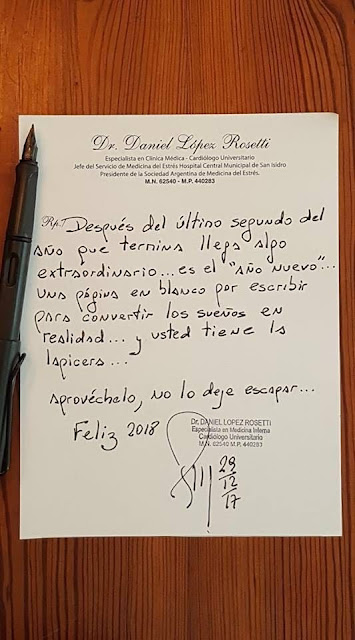 Dr. Daniel López Rosetti
Especialista en Clínica Médica - Cardiólogo Universitario
Jefe del Servicio de Medicina del Estrés Hospital Central Municipal de San Isidro
Presidente de la Sociedad Argentina de Medicina del Estrés.
M.N. 62540 - M.P. 440283
Rp./ Después del último segundo del
año que termina llega algo
extraordinario... es el "año nuevo"...
una página en blanco por escribir
para convertir los sueños en
realidad... y usted tiene la
lapicera...
aprovéchelo, no lo deje escapar...
Feliz 2018
Dr. DANIEL LOPEZ ROSETTI
Especialista en Medicina Interna
Cardiólogo Universitario
M.N. 62540 M.P. 440283
29
12
17